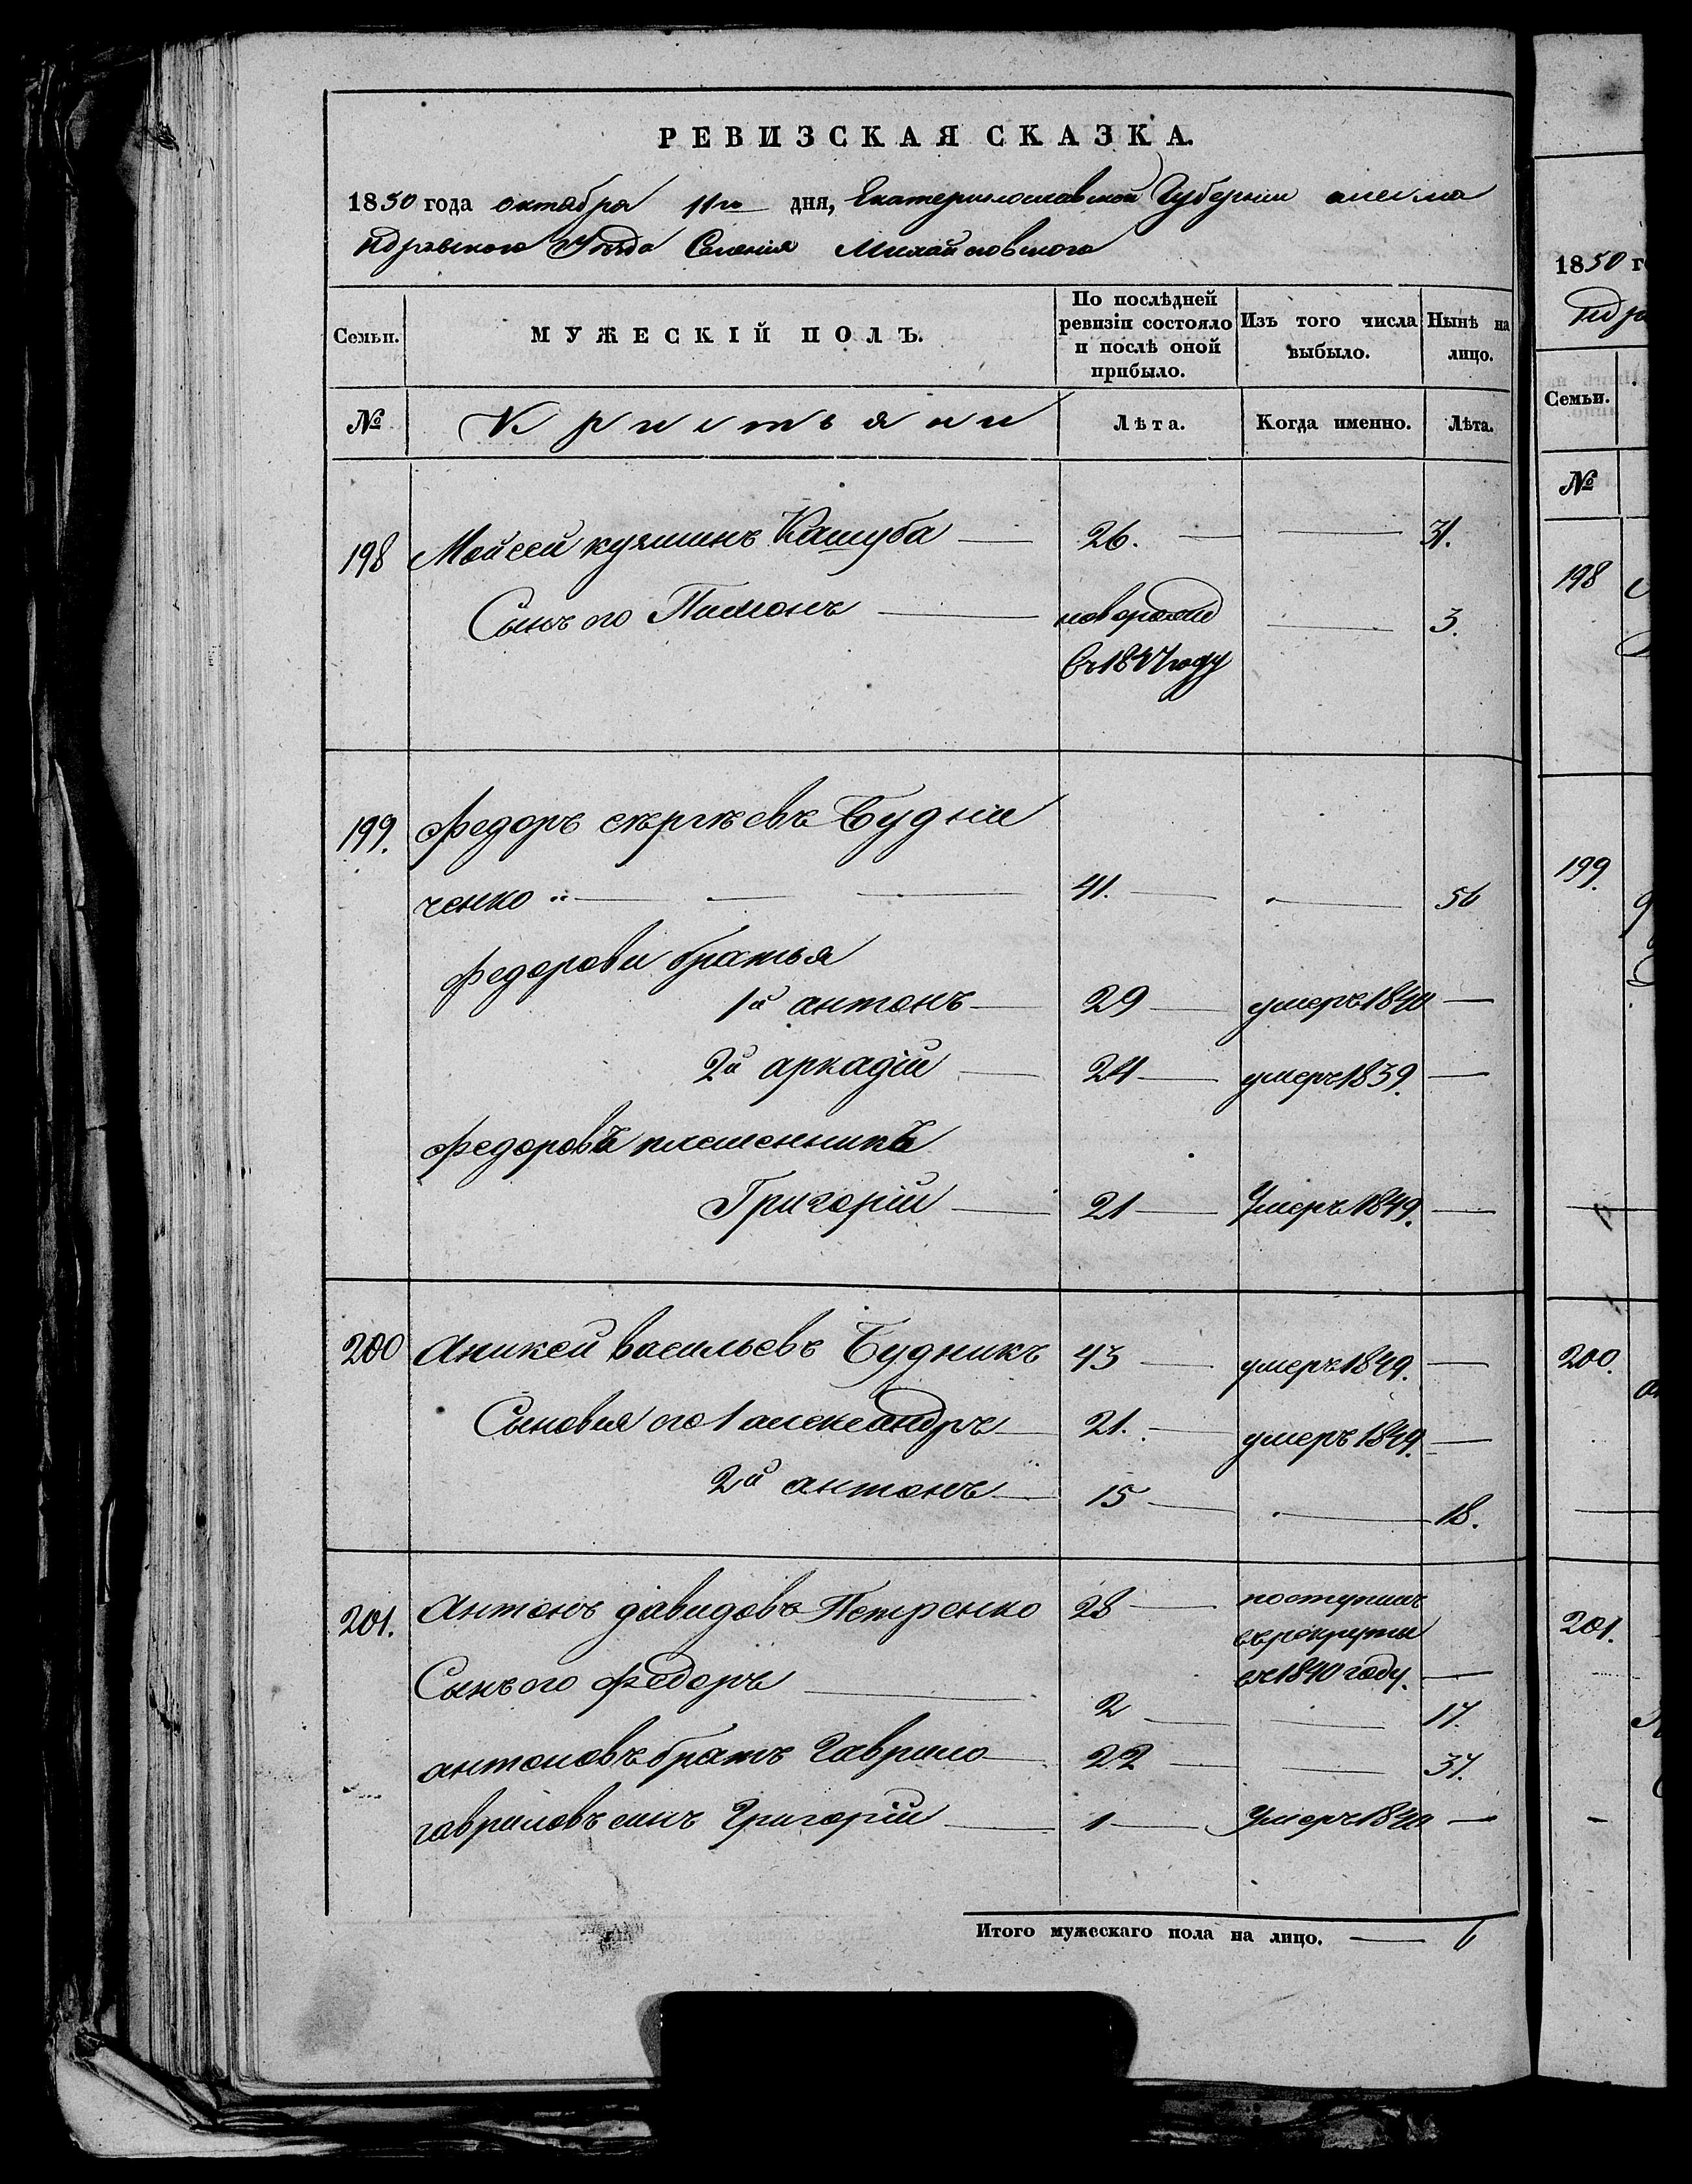 РЕВИЗСКАЯ СКАЗКА.
1850 года октября 11го дня, Екатеринославской Губернии алекса
ндровского Уѣзда Селенія Михайловского
Семьи. МУЖЕСКІЙ ПОЛЪ. По послѣдней ревизіи состояло и послѣ оной прибыло. Изъ того числа выбыло. Нынѣ на лицо.
№ Кристьяни Лѣта. Когда именно. Лѣта.
198 Мойсей кузминъ Кашуба 26. 31.
Сынъ его Пимонъ новорожд 3.
въ 1847 году
199. Федоръ сергѣевъ Будни
ченко 41. 56
Федорови братья
1й антонъ 29 умеръ 1840
2й аркадій 24 умеръ 1839.
Федоровъ племенникъ
Григорій 21 Умеръ 1849.
200 Аникей васильевъ Будникъ 43 умеръ 1849.
Сыновья его 1 александръ 21. умеръ 1849.
2й антонъ 15 18.
201. Антонъ давидовъ Петренко 28 поступилъ
въ рекруты
Сынъ его Федоръ въ 1840 году.
2 17.
антоновъ братъ Гаврило 22 37.
гавриловъ синъ Григорій 1 Умеръ 1840
Итого мужескаго пола на лицо. 6
1850 го
ндро
Семьи.
№
198
199.
200.
201.